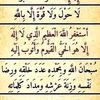 لَا حَوْلَ وَلَا قُوَّةَ إِلَّا بِاللَّهِ
أَسْتَغْفِرُ اللَّهَ الْعَظِيمَ الَّذِي لَا إِلَهَ
إِلَّا هُوَ الْحَيُّ الْقَيُّومُ وَأَتُوبُ إِلَيْهِ
سُبْحَانَ اللَّهِ وَبِحَمْدِهِ عَدَدَ خَلْقِهِ وَرِضَا
نَفْسِهِ وَزِنَةَ عَرْشِهِ وَمِدَادَ كَلِمَاتِهِ